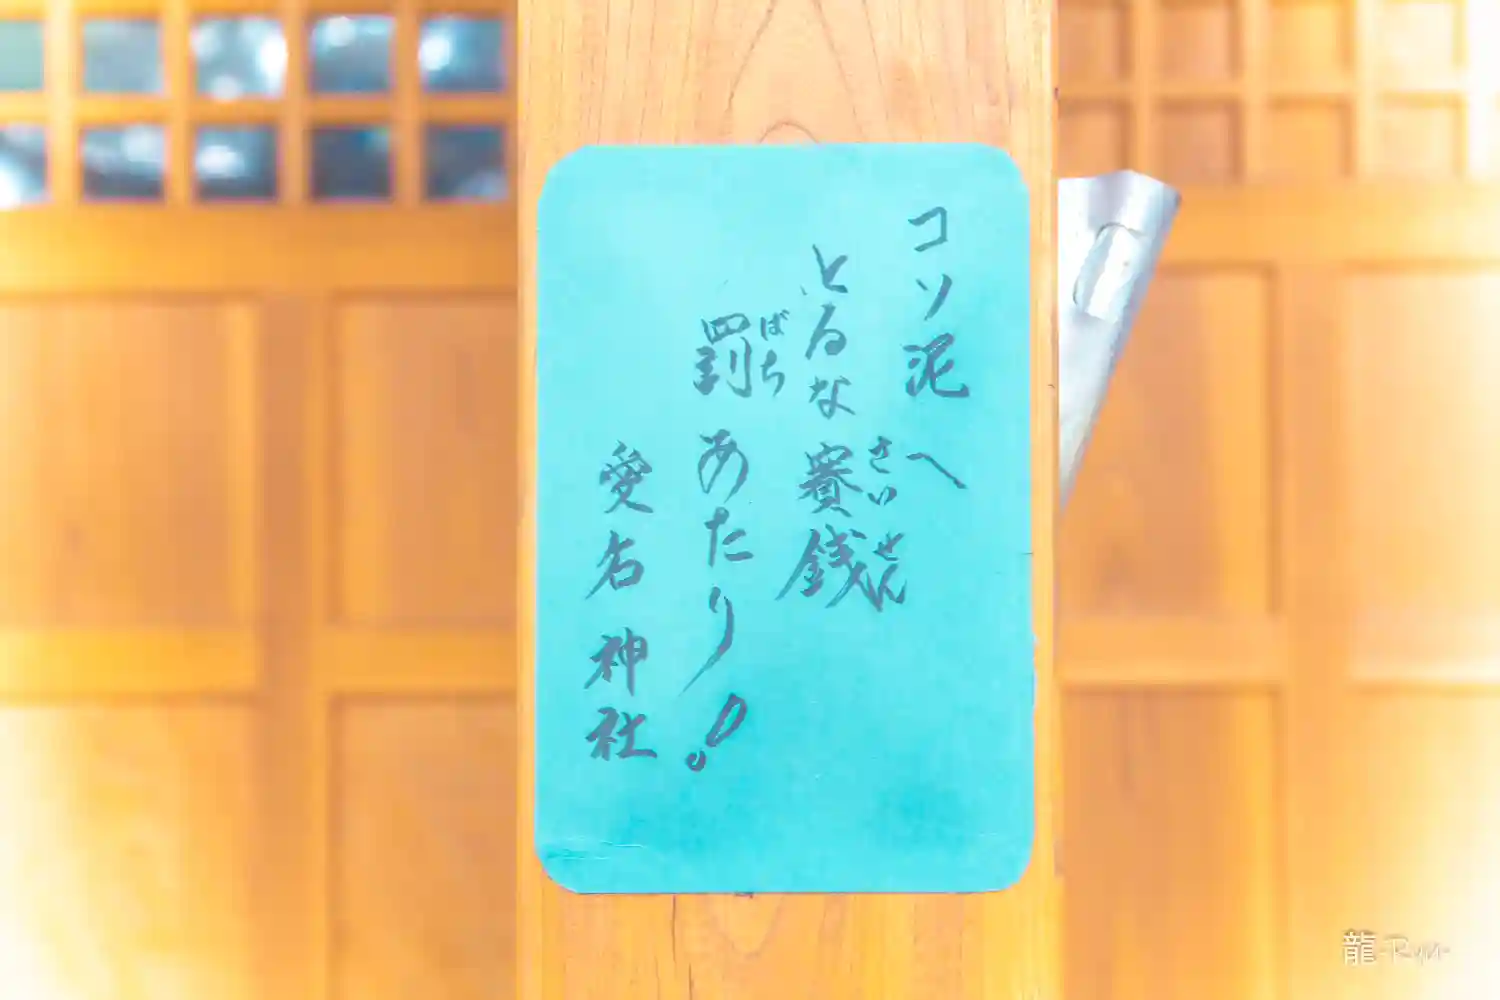 コソ泥へ
とるな賽銭
さいせん
罰あたり!
ばち
愛名神社
龍-Ryu-